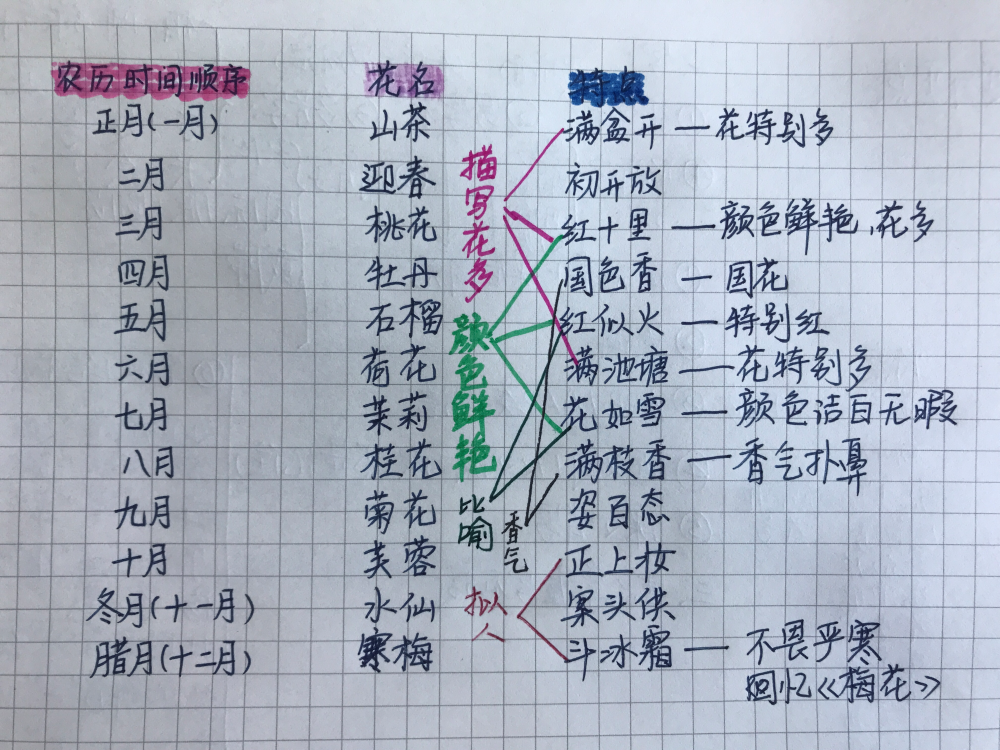 农历时间顺序 花名 特点
正月(一月) 山茶 满盆开 — 花特别多
二月 迎春 初开放
三月 桃花 红十里 — 颜色鲜艳、花多
四月 牡丹 国色香 — 国花
五月 石榴 红似火 — 特别红
六月 荷花 满池塘 — 花特别多
七月 茉莉 花如雪 — 颜色洁白无暇
八月 桂花 满枝香 — 香气扑鼻
九月 菊花 姿百态
十月 芙蓉 正上妆
冬月(十一月) 水仙 案头供
腊月(十二月) 寒梅 斗冰霜 — 不畏严寒
回忆《梅花》
描写花多
颜色鲜艳
比喻
香气
拟人